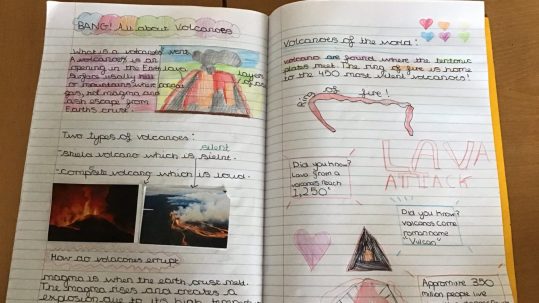 BANG! All about Volcanoes
What is a volcanoes?
A volcanoes is an
opening in the Earth
surface usally hill
or mountains where
gas, hot magma and
ash escape from
Earth's crust.
vent
lava
layers
of
Two types of volcanoes:
silent
-Shield volcano which is sielnt.
-Compesite volcano which is loud.
How do volacones errupt
magma is when the earth crust melt.
The magma rises and creates a
explosion due to its high
Volcanoes of the world:
volcano are found where the tentonic
plates meet. The ring of fire is home
to the 450 most silent volcanoes!
Ring of fire!
LAVA
ATTACK
Did you know?
Lava from a
volcanoes reach
1,250°
Did you know?
volcanos come
roman name
"Vulcan"
350
million people live